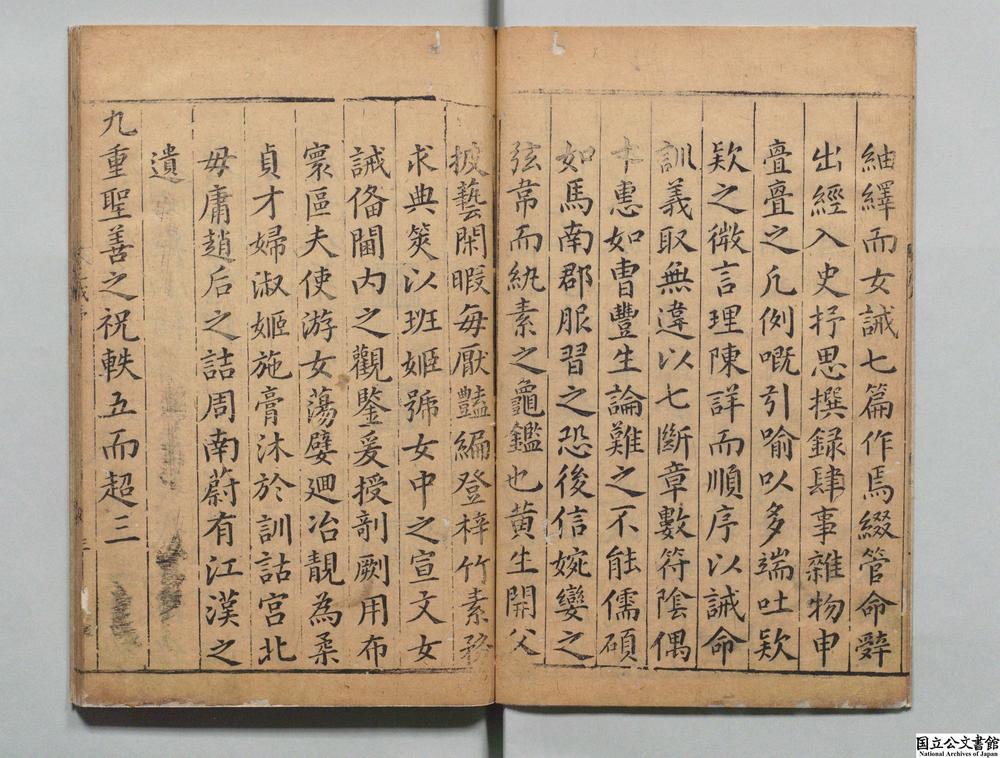 紬繹而女誡七篇作焉綴管命辭
出經入史抒思撰録肆事雜物申
亹亹之凡例嘅引喻以多端吐欵
欵之微言理陳詳而順序以誡命
訓義取無違以七斷章數符陰偶
恚如曹豐生論難之不能儒碩
如馬南郡服習之恐後信婉孌之
弦韋而紈素之龜鑑也黄生開父
披藝閑暇每厭豔編登梓竹素務
求典筴以班姬號女中之宣文女
誡俻閫内之觀鍳爰授剞劂用布
寰區夫使游女蕩嬖廻冶靚為柔
貞才婦淑姬施膏沐於訓詁宮北
毋庸趙后之詰周南蔚有江漢之
遺
九重聖善之祝軼五而超三
国立公文書館
National Archives of Japan